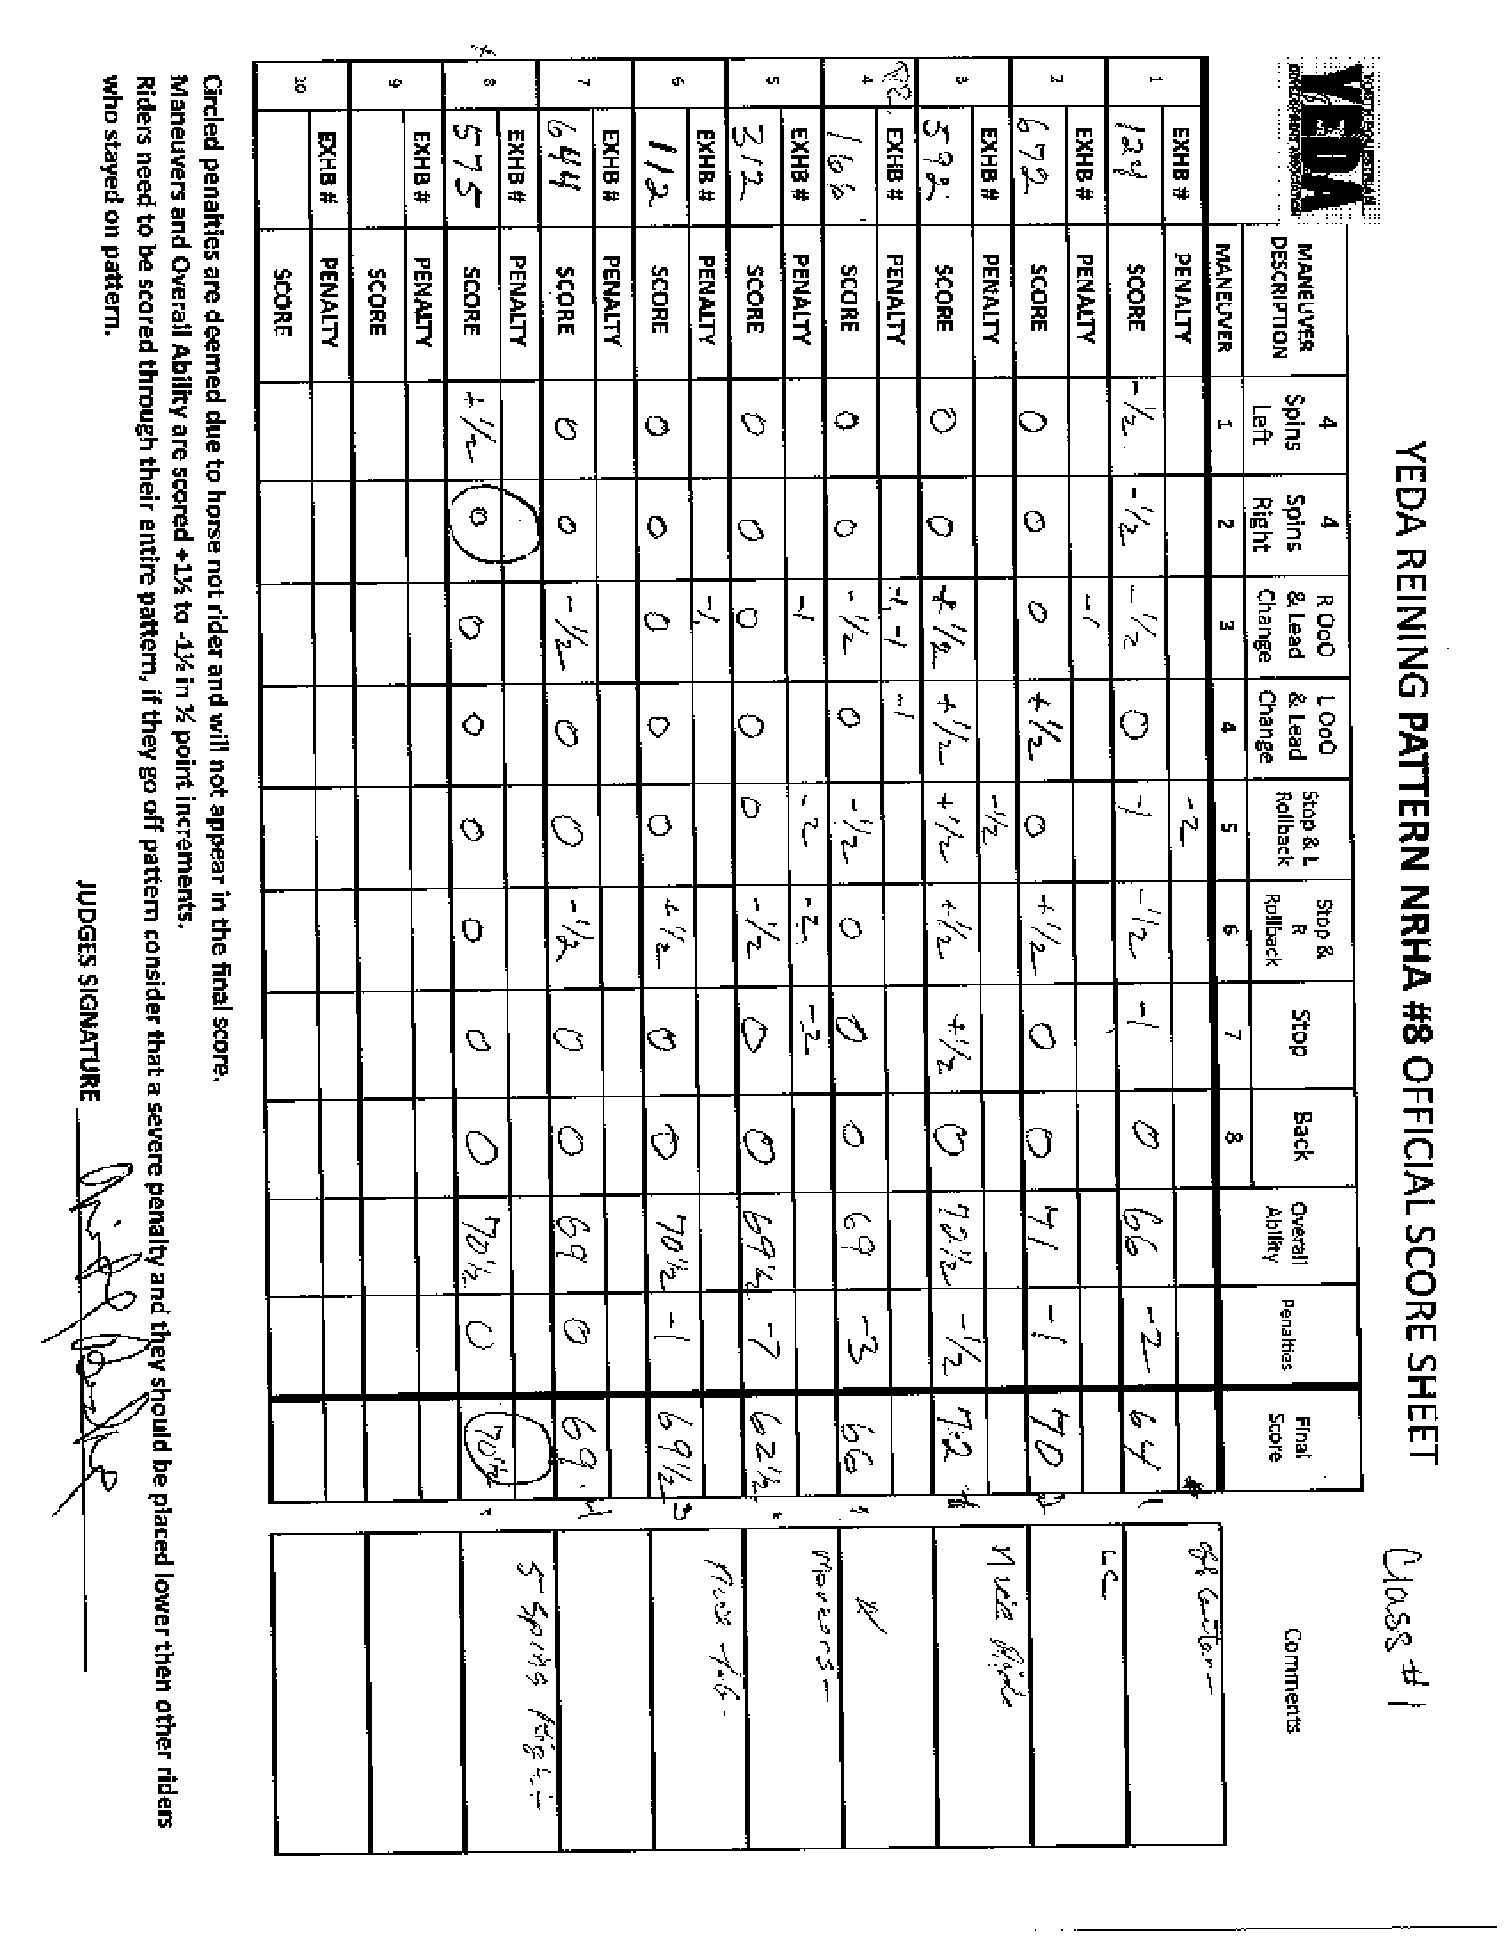 YEDA REINING PATTERN NRHA #8 OFFICIAL SCORE SHEET
Class #1
YEDA
MANEUVER DESCRIPTION | 4 Spins Left | 4 Spins Right | R OoO & Lead Change | L OoO & Lead Change | Stop & L Rollback | Stop & R Rollback | Stop | Back | Overall Ability | Penalties | Final Score | Comments
MANEUVER 1 2 3 4 5 6 7 8
1 EXHB # PENALTY -2
124 SCORE -1/2 -1/2 -1/2 0 -1 -1/2 -1 0 66 -2 64
2 EXHB # PENALTY -1
672 SCORE 0 0 0 +1/2 0 +1/2 0 0 71 -1 70 LC
3 EXHB # PENALTY -1/2
592 SCORE 0 0 +1/2 +1/2 +1/2 +1/2 +1/2 0 72 1/2 -1/2 72 Nice Ride
4 EXHB # PENALTY -1 -1 -1
166 SCORE 0 0 -1/2 0 -1/2 0 0 0 69 -3 66
5 EXHB # PENALTY -1 -2 -2 -2
312 SCORE 0 0 0 0 0 -1/2 0 0 69 1/2 -7 62 1/2
6 EXHB # PENALTY -1
112 SCORE 0 0 0 0 0 +1/2 0 0 70 1/2 -1 69 1/2 3
7 EXHB # PENALTY
644 SCORE 0 0 -1/2 0 0 -1/2 0 0 69 0 69 4
8 EXHB # PENALTY
575 SCORE +1/2 0 0 0 0 0 0 0 70 1/2 0 70 1/2 5 Spins Right
9 EXHB # PENALTY
SCORE
10 EXHB # PENALTY
SCORE
Circled penalties are deemed due to horse not rider and will not appear in the final score.
Maneuvers and Overall Ability are scored +1½ to -1½ in ½ point increments.
Riders need to be scored through their entire pattern, if they go off pattern consider that a severe penalty and they should be placed lower then other riders
who stayed on pattern.
JUDGES SIGNATURE